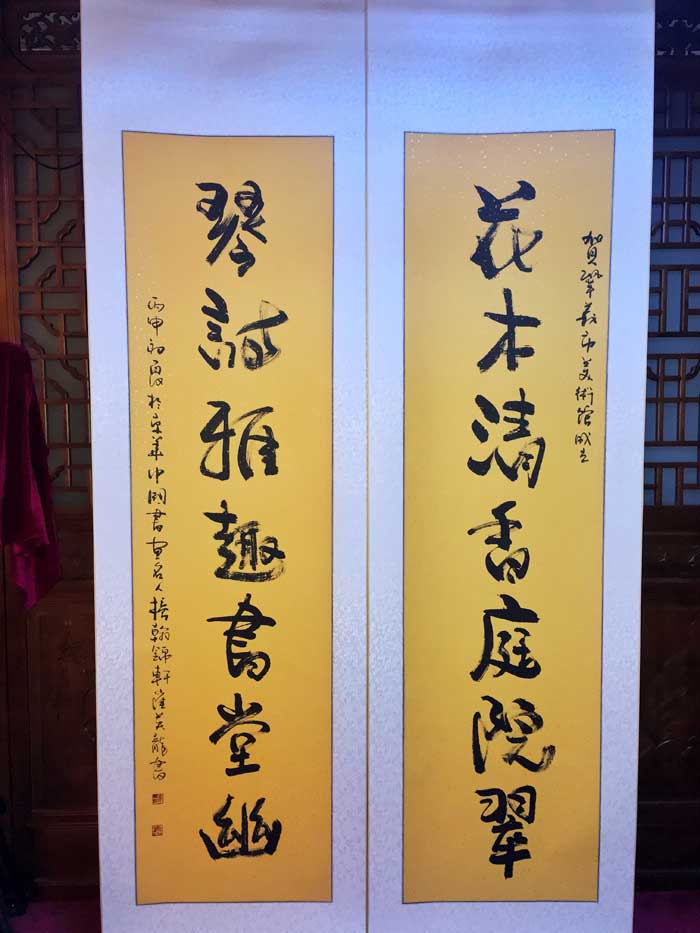 賀市美術館成立
花木清香庭院翠
琴詩雅趣書堂幽
丙申初夏於京華中國書画名人榜翰錦軒崔龍書